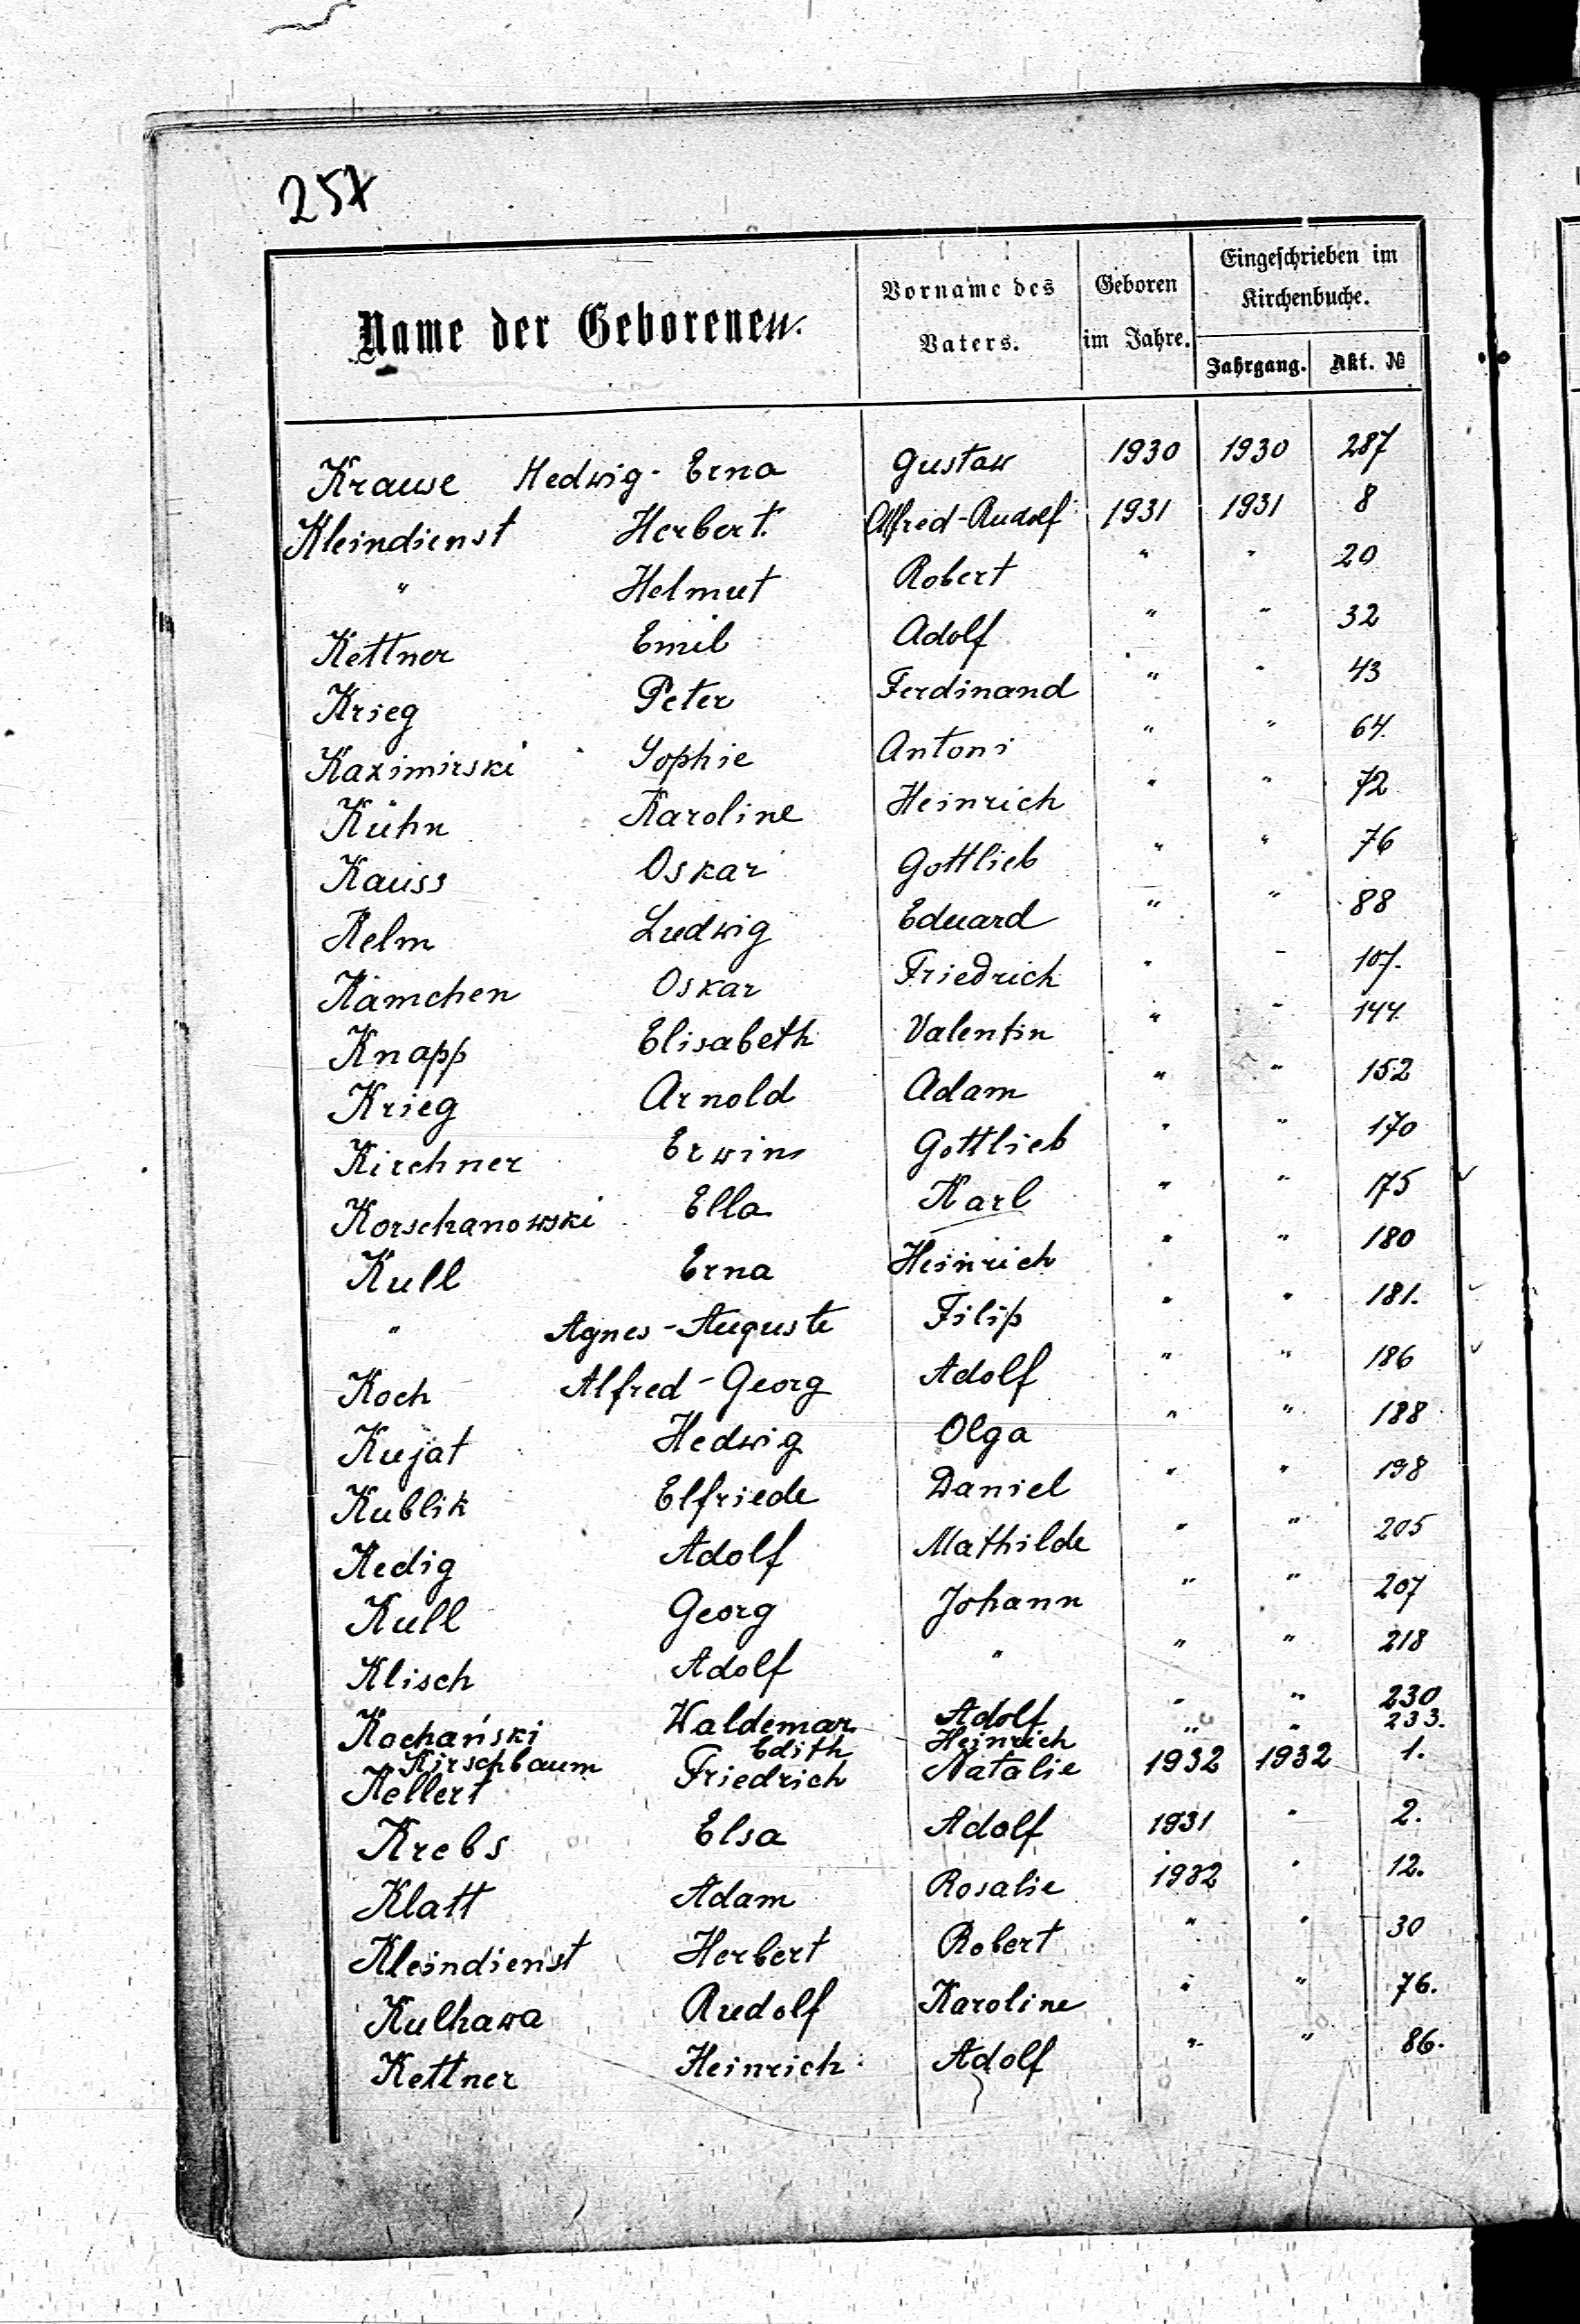 257
Name der Geborenen.
Vorname des Vaters.
Geboren im Jahre.
Eingeschrieben im Kirchenbuche.
Jahrgang. Akt. №
Krause Hedwig-Erna Gustaw 1930 1930 287
Kleindienst Herbert Alfred-Rudolf 1931 1931 8
" Helmut Robert " " 20
Kettner Emil Adolf " " 32
Krieg Peter Ferdinand " " 43
Kazimirski Sophie Antoni " " 64.
Kühn Karoline Heinrich " " 72
Kauss Oskar Gottlieb " " 76
Kelm Ludwig Eduard " " 88
Kämchen Oskar Friedrich " " 107.
Knapp Elisabeth Valentin " " 144.
Krieg Arnold Adam " " 152
Kirchner Erwin Gottlieb " " 170
Korschanowski Ella Karl " " 175
Kull Erna Heinrich " " 180
" Agnes-Auguste Filip " " 181.
Koch Alfred-Georg Adolf " " 186
Kujat Hedwig Olga " " 188
Kublik Elfriede Daniel " " 198
Kedig Adolf Mathilde " " 205
Kull Georg Johann " " 207
Klisch Adolf " " " 218
Kochański Waldemar Adolf " " 230
Kirschbaum Edith Heinrich " " 233.
Kellert Friedrich Natalie 1932 1932 1.
Krebs Elsa Adolf 1931 " 2.
Klatt Adam Rosalie 1932 " 12.
Kleindienst Herbert Robert " " 30
Kulhawa Rudolf Karoline " " 76.
Kettner Heinrich Adolf " " 86.